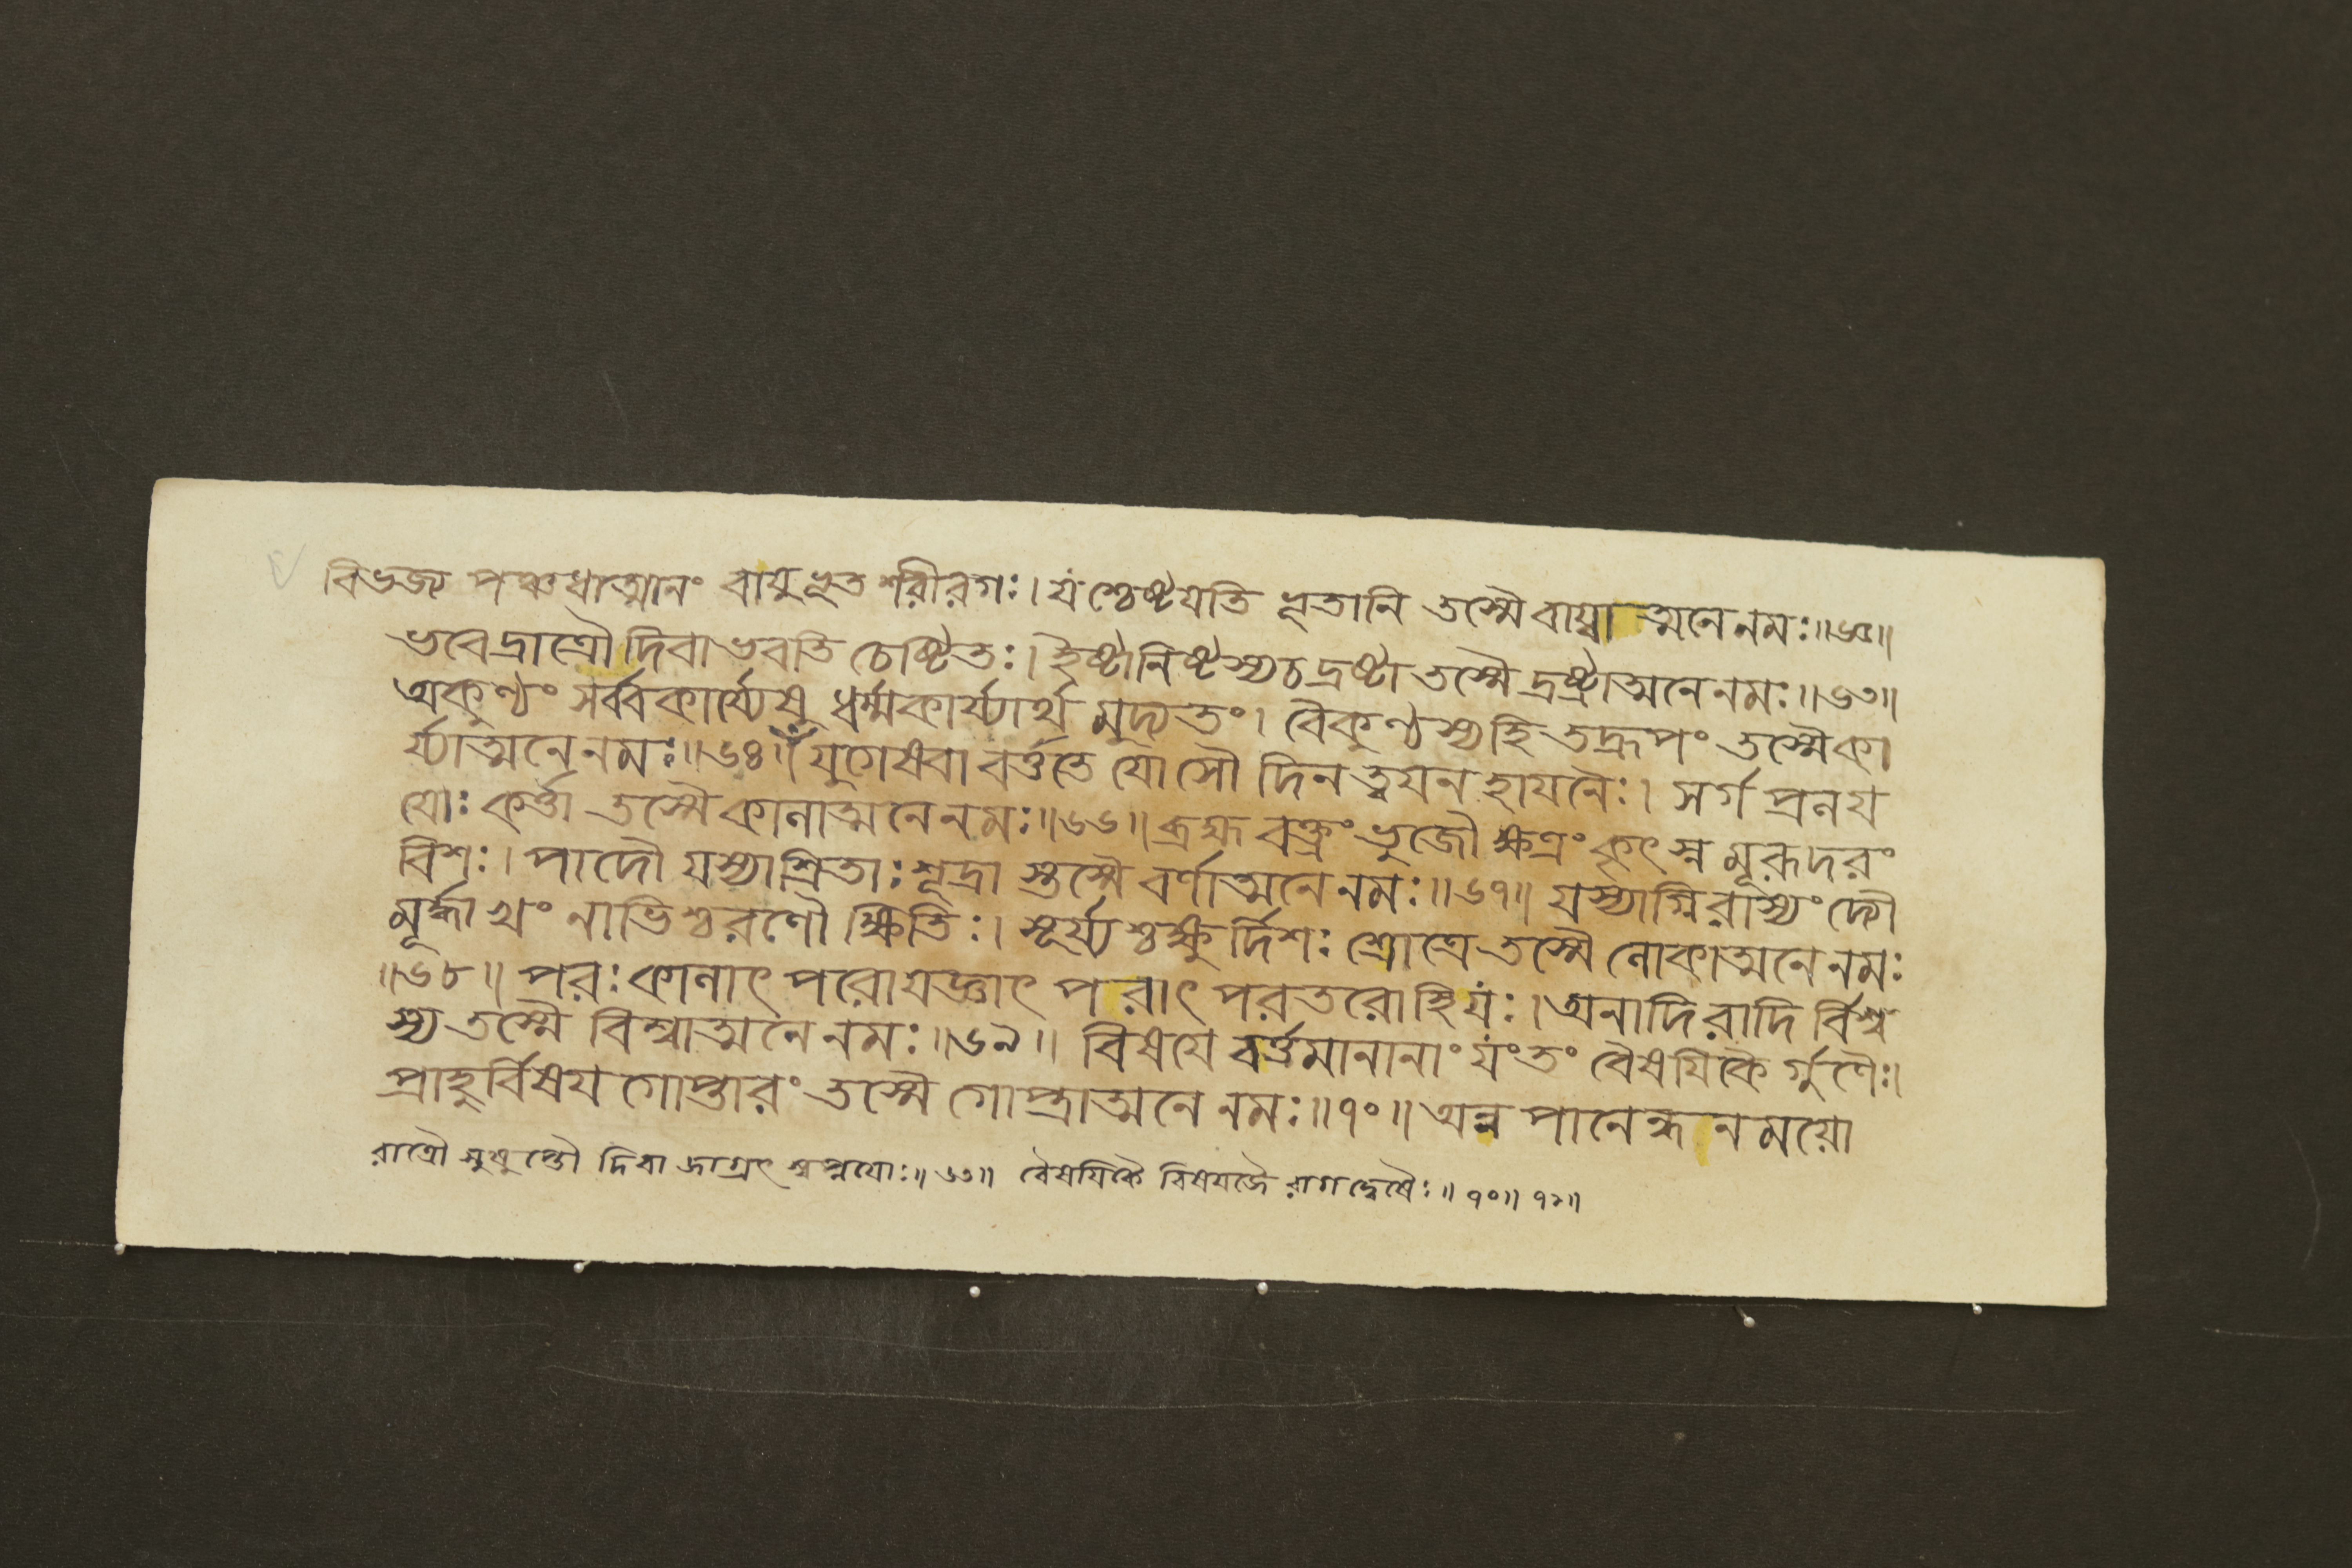 বিভজ্য পঞ্চধাত্মানং বায়ুর্ভূত শরীরগঃ। যশ্চেষ্টযতি ভূতানি তস্মৈ বায়্বাত্মনে নমঃ॥৬৫॥
ভবেদ্রাত্রৌ দিবা ভবতি চেষ্টিতঃ। ইষ্টানিষ্টস্য চ দ্রষ্টা তস্মৈ দ্রষ্ট্রাত্মনে নমঃ॥৬৩॥
অকুণ্ঠং সর্ব্বকার্য্যেষু ধর্ম্মকার্য্যার্থ মুদ্যতং। বৈকুণ্ঠস্য হি তদ্রূপং তস্মৈ কা
র্য্যাত্মনে নমঃ॥৬৪॥ যুগেষ্বা বর্ত্ততে যোসৌ দিনর্ত্ত্বযন হাযনৈঃ। সর্গ প্রলয
যোঃ কর্ত্তা তস্মৈ কালাত্মনে নমঃ॥৬৬॥ ব্রহ্ম বক্ত্রং ভুজৌ ক্ষত্রং কৃৎস্ন মূরূদরং
বিশঃ। পাদৌ যস্যাশ্রিতাঃ শূদ্রা স্তস্মৈ বর্ণাত্মনে নমঃ॥৬৭॥ যস্যাগ্নিরাস্যং দ্যৌ
মূর্দ্ধা খং নাভিশ্চরণৌ ক্ষিতিঃ। সূর্য্যশ্চক্ষু র্দিশঃ শ্রোত্রে তস্মৈ লোকাত্মনে নমঃ
॥৬৮॥ পরঃ কালাৎ পরো যজ্ঞাৎ পরাৎ পরতরো হি যঃ। অনাদিরাদি র্বিশ্ব
স্য তস্মৈ বিশ্বাত্মনে নমঃ॥৬৯॥ বিষযে বর্ত্তমানানাং যং তং বৈষযিকৈ র্গুণৈঃ।
প্রাহুর্বিষয গোপ্তারং তস্মৈ গোপ্ত্রাত্মনে নমঃ॥৭০॥ অন্ন পানেন্ধনময়ো
রাত্রৌ সুষুপ্তৌ দিবা জাগ্রৎ স্বপ্নযোঃ॥৬৩॥ বৈষযিকৈ বিষযজৈ রাগদ্বেষৈঃ॥৭০॥ ৭১॥